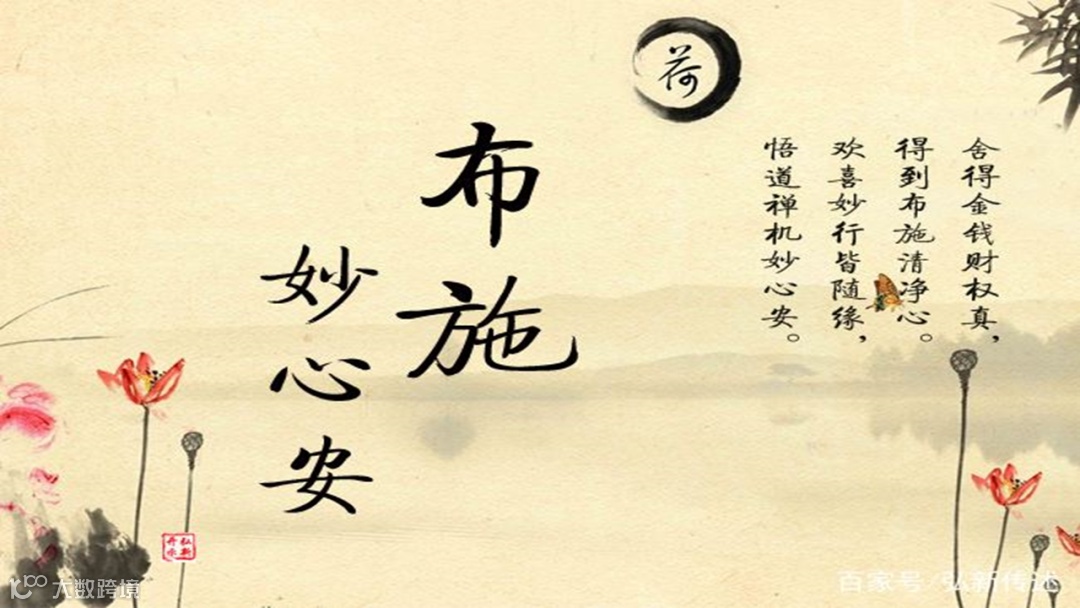 荷
舍得金钱财权真，
得到布施清净心。
欢喜妙行皆随缘，
悟道禅机妙心安。
布施
妙心安
大数跨境
百家号/弘新传述